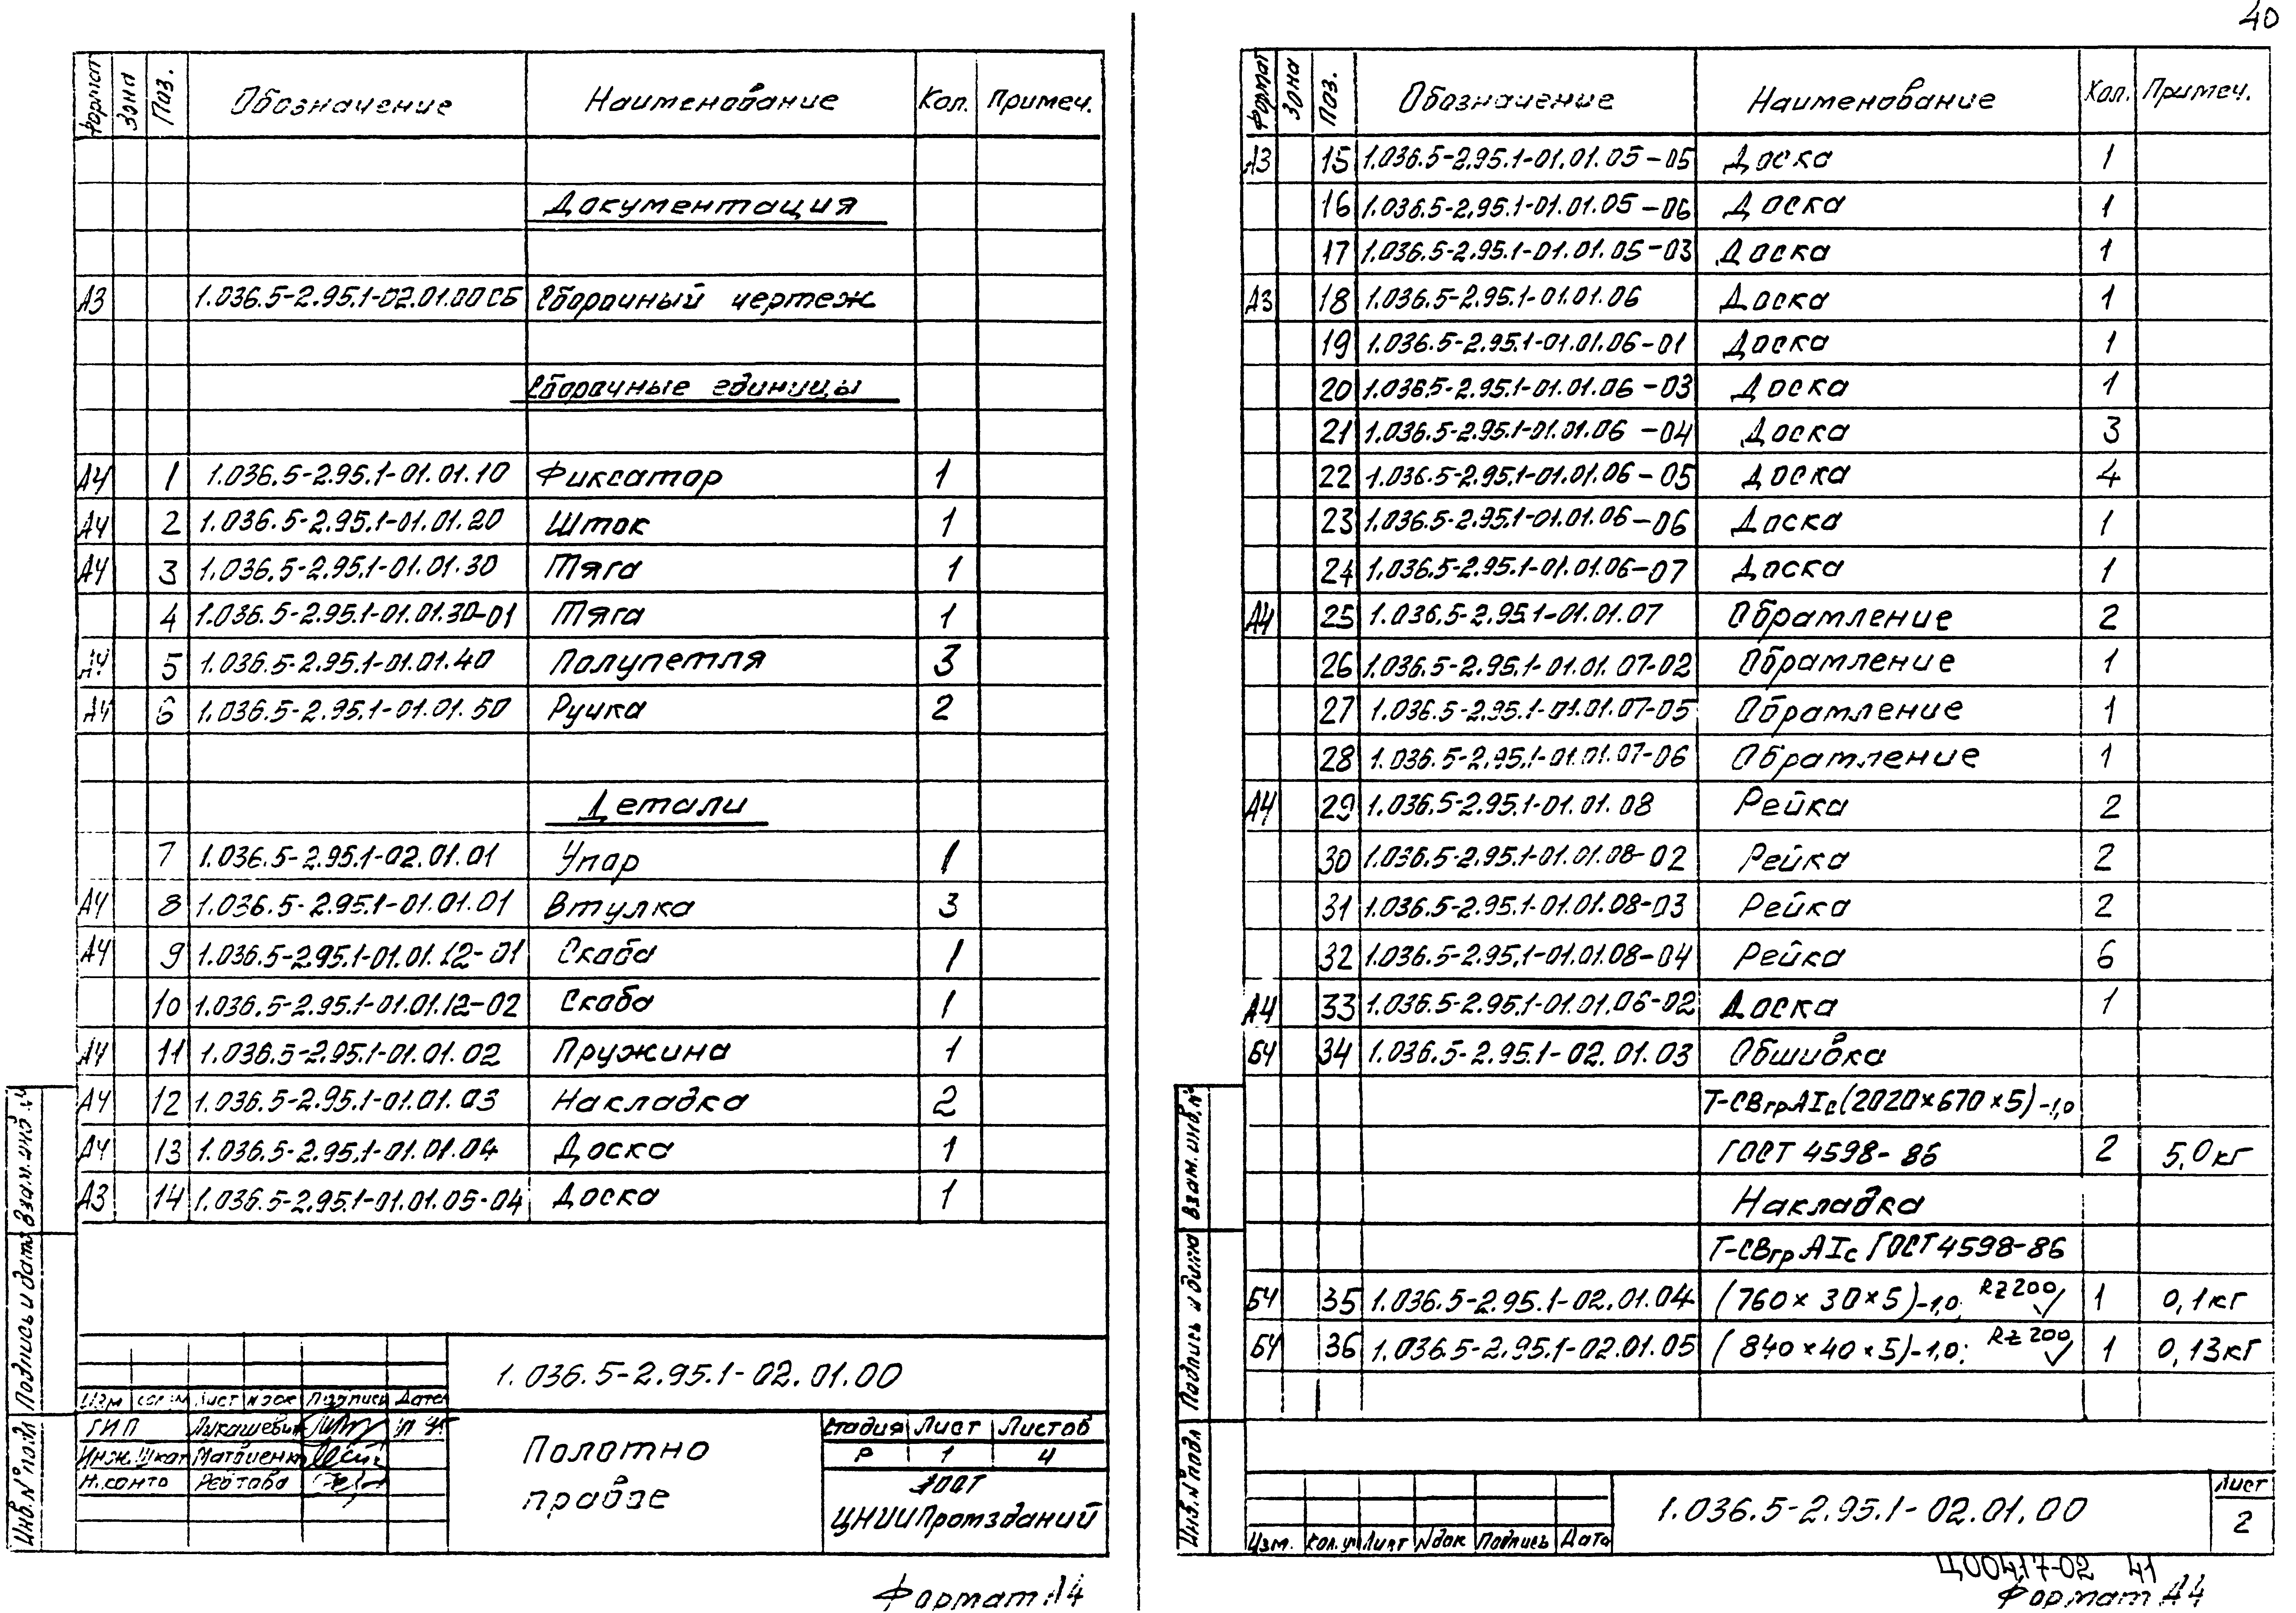 40
Формат Зона Поз. Обозначение Наименование Кол. Примеч.
Документация
А3 1.036.5-2.95.1-02.01.00СБ Сборочный чертеж
Сборочные единицы
А4 1 1.036.5-2.95.1-01.01.10 Фиксатор 1
А4 2 1.036.5-2.95.1-01.01.20 Шток 1
А4 3 1.036.5-2.95.1-01.01.30 Тяга 1
4 1.036.5-2.95.1-01.01.30-01 Тяга 1
А4 5 1.036.5-2.95.1-01.01.40 Полупетля 3
А4 6 1.036.5-2.95.1-01.01.50 Ручка 2
Детали
7 1.036.5-2.95.1-02.01.01 Упор 1
А4 8 1.036.5-2.95.1-01.01.01 Втулка 3
А4 9 1.036.5-2.95.1-01.01.12-01 Скоба 1
10 1.036.5-2.95.1-01.01.12-02 Скоба 1
А4 11 1.036.5-2.95.1-01.01.02 Пружина 1
А4 12 1.036.5-2.95.1-01.01.03 Накладка 2
А4 13 1.036.5-2.95.1-01.01.04 Доска 1
А3 14 1.036.5-2.95.1-01.01.05-04 Доска 1
Взам. инв. №
Подпись и дата
Инв. № подл
1.036.5-2.95.1-02.01.00
Изм Лист № док Подпись Дата
ГИП Лукашевич
Инж. Iкат Матвиенко
Н. контр Ревтова
Полотно правое
Стадия Лист Листов
Р 1 4
ЦНИИПромзданий
Формат А4
Формат Зона Поз. Обозначение Наименование Кол. Примеч.
А3 15 1.036.5-2.95.1-01.01.05-05 Доска 1
16 1.036.5-2.95.1-01.01.05-06 Доска 1
17 1.036.5-2.95.1-01.01.05-03 Доска 1
А3 18 1.036.5-2.95.1-01.01.06 Доска 1
19 1.036.5-2.95.1-01.01.06-01 Доска 1
20 1.036.5-2.95.1-01.01.06-03 Доска 1
21 1.036.5-2.95.1-01.01.06-04 Доска 3
22 1.036.5-2.95.1-01.01.06-05 Доска 4
23 1.036.5-2.95.1-01.01.06-06 Доска 1
24 1.036.5-2.95.1-01.01.06-07 Доска 1
А4 25 1.036.5-2.95.1-01.01.07 Обрамление 2
26 1.036.5-2.95.1-01.01.07-02 Обрамление 1
27 1.036.5-2.95.1-01.01.07-05 Обрамление 1
28 1.036.5-2.95.1-01.01.07-06 Обрамление 1
А4 29 1.036.5-2.95.1-01.01.08 Рейка 2
30 1.036.5-2.95.1-01.01.08-02 Рейка 2
31 1.036.5-2.95.1-01.01.08-03 Рейка 2
32 1.036.5-2.95.1-01.01.08-04 Рейка 6
А4 33 1.036.5-2.95.1-01.01.06-02 Доска 1
БЧ 34 1.036.5-2.95.1-02.01.03 Обшивка
Т-СВгрАIс(2020×670×5)-1,0
ГОСТ 4598-86 2 5,0кг
Накладка
Т-СВгрАIс ГОСТ 4598-86
БЧ 35 1.036.5-2.95.1-02.01.04 (760×30×5)-1,0; Rz200 1 0,1кг
БЧ 36 1.036.5-2.95.1-02.01.05 (840×40×5)-1,0; Rz200 1 0,13кг
Взам. инв. №
Подпись и дата
Инв. № подл
Изм. Кол.уч Лист № док Подпись Дата
1.036.5-2.95.1-02.01.00
Лист
2
Ц00417-02 41
Формат А4